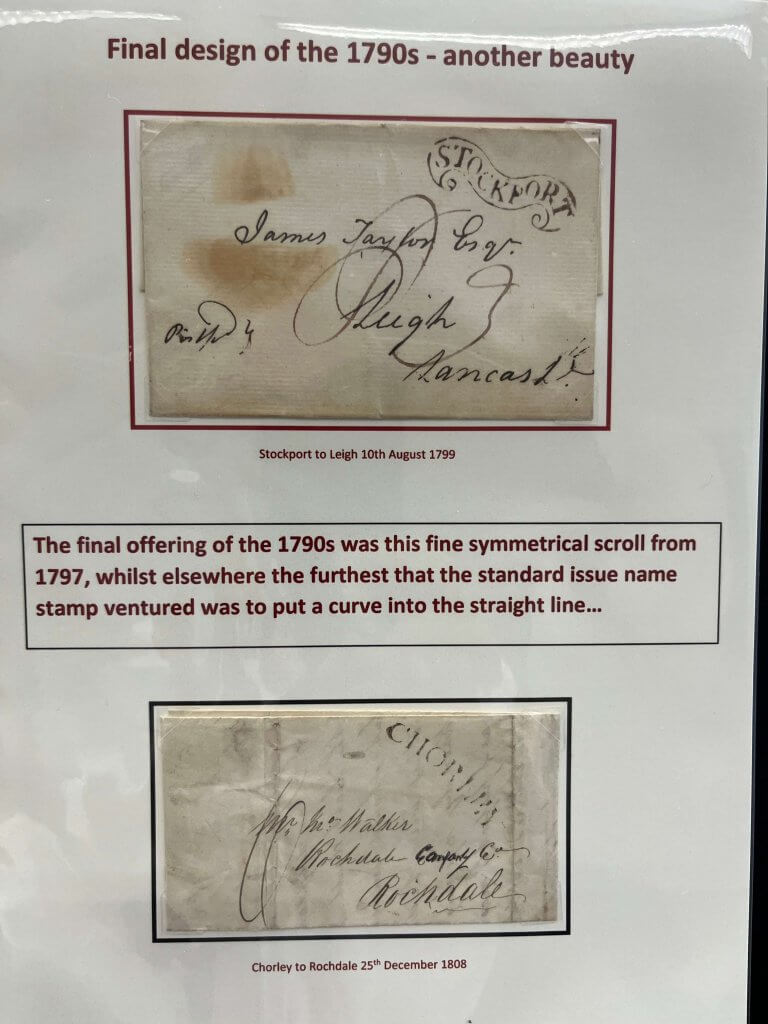 Final design of the 1790s - another beauty
STOCKPORT
James Taylor Esqr.
Leigh
Lancasr.
Stockport to Leigh 10th August 1799
The final offering of the 1790s was this fine symmetrical scroll from
1797, whilst elsewhere the furthest that the standard issue name
stamp ventured was to put a curve into the straight line...
CHORLEY
Walker
Rochdale
Rochdale
Chorley to Rochdale 25th December 1808